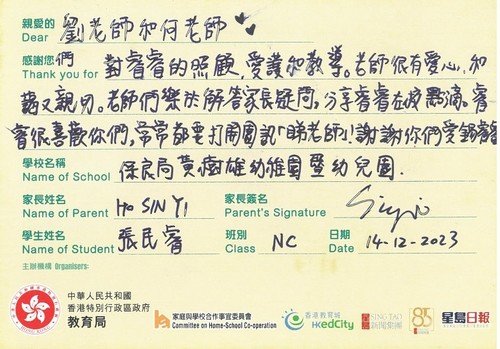 親愛的
Dear 劉老師和何老師
感謝您們
Thank you for 對睿睿的照顧, 愛護和教導。老師很有愛心, 和
藹又親切。老師們樂於解答家長疑問, 分享睿睿在校點滴。睿
睿很喜歡你們, 常常都要打開園訊「睇老師」! 謝謝你們愛錫睿睿
學校名稱
Name of School 保良局黃樹雄幼稚園暨幼兒園
家長姓名 家長簽名
Name of Parent Ho SIN YI Parent's Signature
學生姓名 班別 日期
Name of Student 張民睿 Class NC Date 14-12-2023
主辦機構 Organisers:
中華人民共和國
香港特別行政區政府
教育局
家庭與學校合作事宜委員會
Committee on Home-School Co-operation
香港教育城
HKedCity
SING TAO
新聞集團
85
星島日報